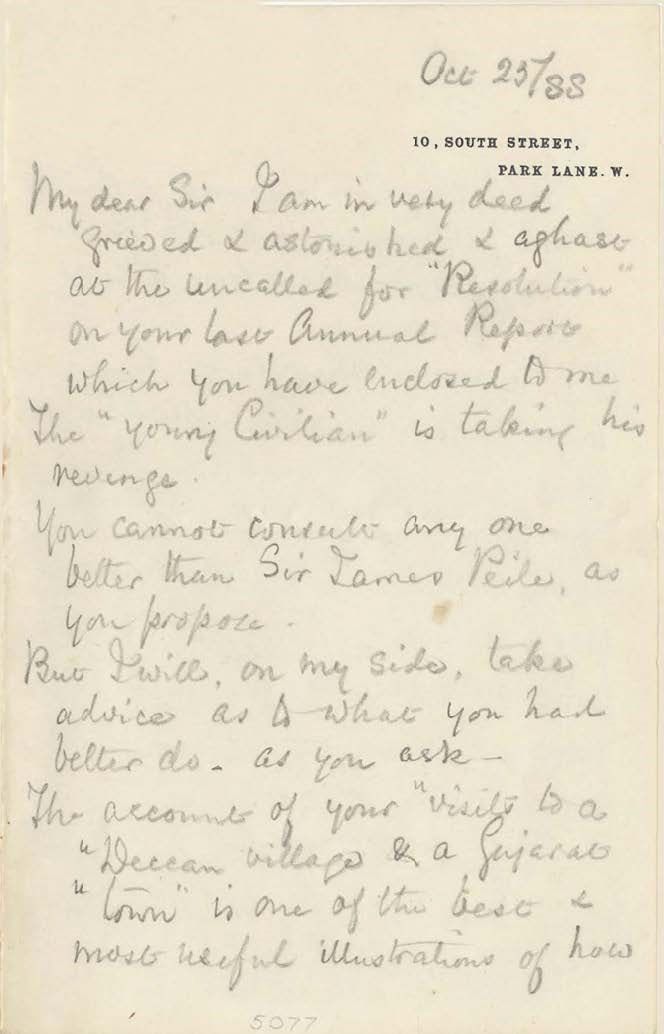 Oct 23/88
10, SOUTH STREET,
PARK LANE. W.
My dear Sir I am in very deed
grieved & astonished & aghast
at the uncalled for "Resolution"
on your last Annual Report
which you have enclosed to me
The "young Civilian" is taking his
revenge.
You cannot consult any one
better than Sir James Peile, as
you propose.
But I will, on my side, take
advice as to what you had
better do - as you ask -
The account of your "visits to a
"Deccan village & a Gujarat
"town" is one of the best &
most useful illustrations of how
5077